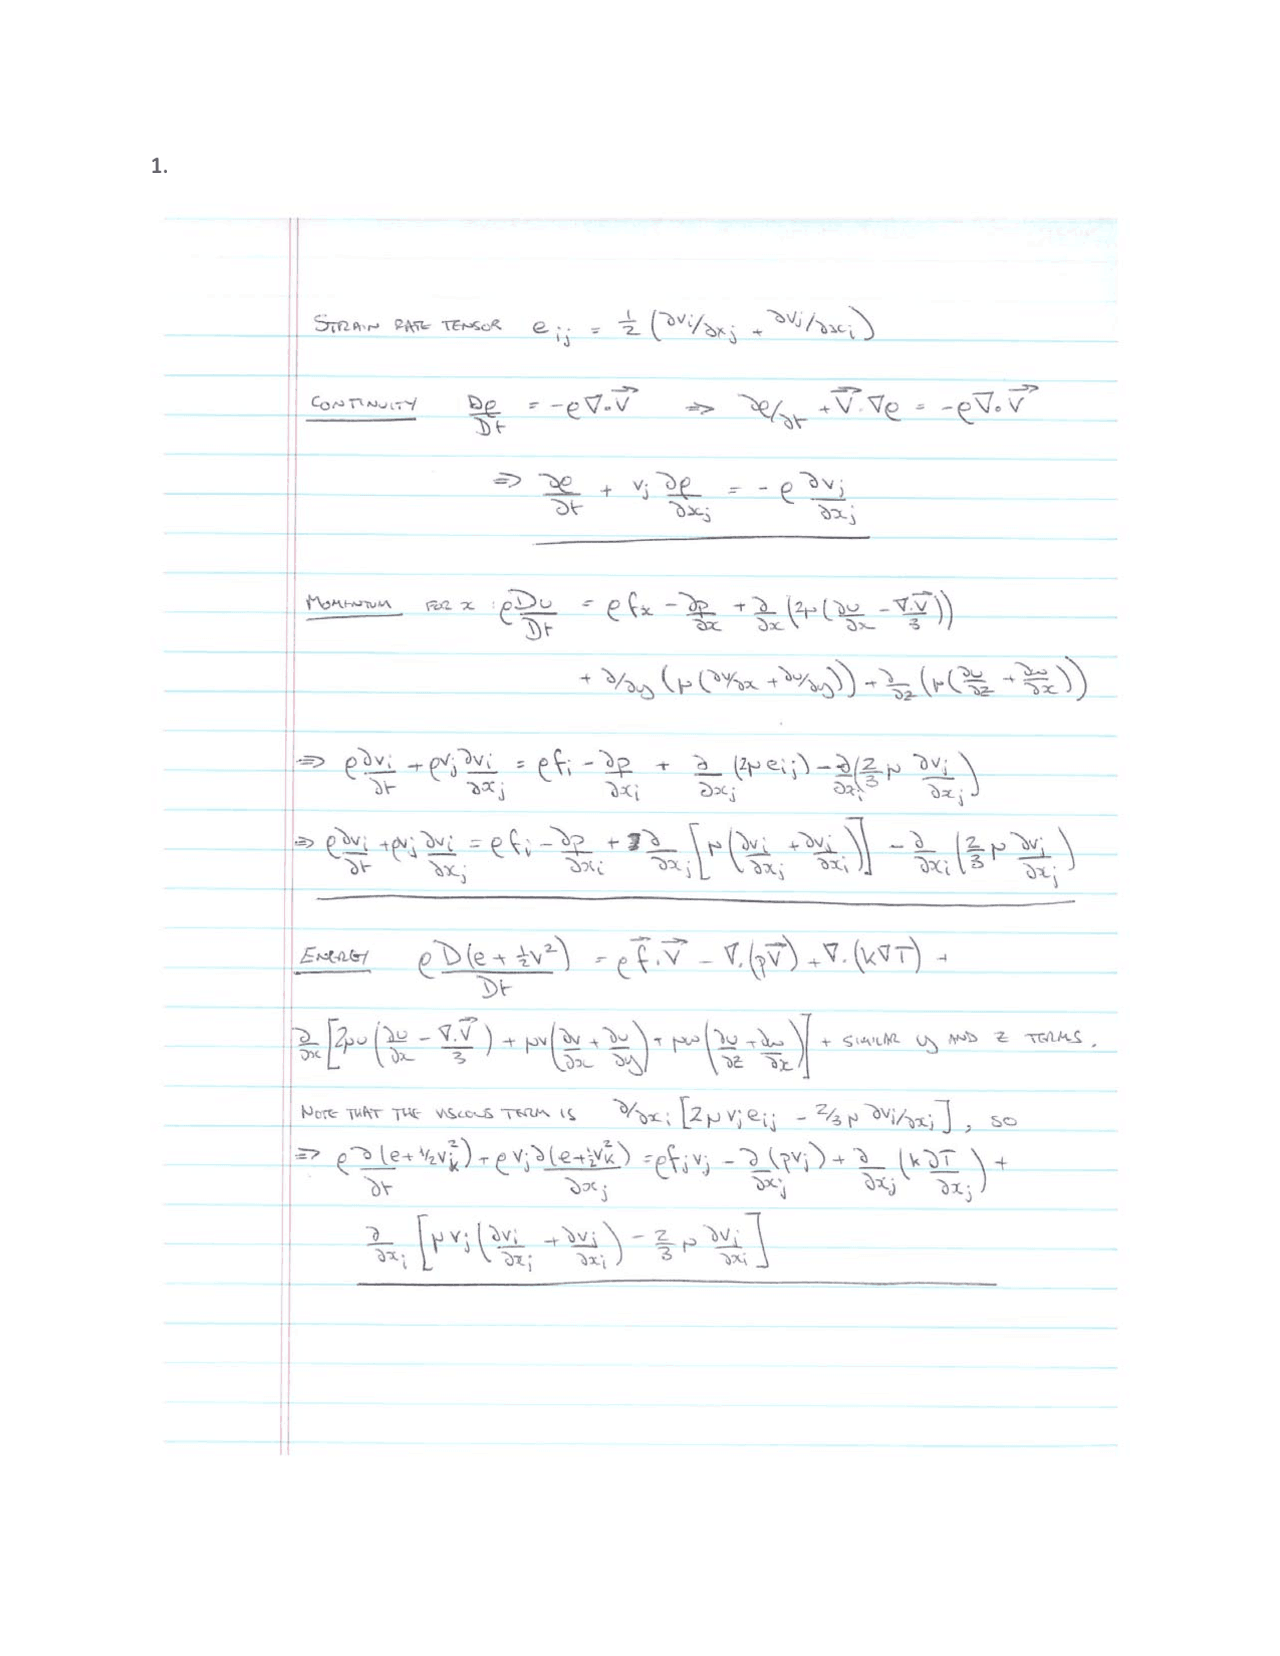 1.
STRAIN RATE TENSOR e_ij = 1/2 (∂vi/∂xj + ∂vj/∂xi)
CONTINUITY Dρ/Dt = -ρ∇·V⃗ ⇒ ∂ρ/∂t + V⃗·∇ρ = -ρ∇·V⃗
⇒ ∂ρ/∂t + vj ∂ρ/∂xj = -ρ ∂vj/∂xj
MOMENTUM FOR x: ρ Du/Dt = ρfx - ∂p/∂x + ∂/∂x (2μ(∂u/∂x - ∇·V⃗/3))
+ ∂/∂y (μ(∂v/∂x + ∂u/∂y)) + ∂/∂z (μ(∂u/∂z + ∂w/∂x))
⇒ ρ ∂vi/∂t + ρvj ∂vi/∂xj = ρfi - ∂p/∂xi + ∂/∂xj (2μ eij) - ∂/∂xi (2/3 μ ∂vj/∂xj)
⇒ ρ ∂vi/∂t + ρvj ∂vi/∂xj = ρfi - ∂p/∂xi + ∂/∂xj [μ(∂vi/∂xj + ∂vj/∂xi)] - ∂/∂xi (2/3 μ ∂vj/∂xj)
ENERGY ρ D(e + 1/2 V²)/Dt = ρ f⃗·V⃗ - ∇·(pV⃗) + ∇·(k∇T) +
∂/∂x [2μu(∂u/∂x - ∇·V⃗/3) + μv(∂v/∂x + ∂u/∂y) + μw(∂u/∂z + ∂w/∂x)] + SIMILAR y AND z TERMS.
NOTE THAT THE VISCOUS TERM IS ∂/∂xi [2μ vj eij - 2/3 μ ∂vi/∂xj], SO
⇒ ρ ∂(e + 1/2 vk²)/∂t + ρvj ∂(e + 1/2 vk²)/∂xj = ρfjvj - ∂/∂xj (pvj) + ∂/∂xj (k ∂T/∂xj) +
∂/∂xi [μvj(∂vi/∂xj + ∂vj/∂xi) - 2/3 μ ∂vj/∂xi]